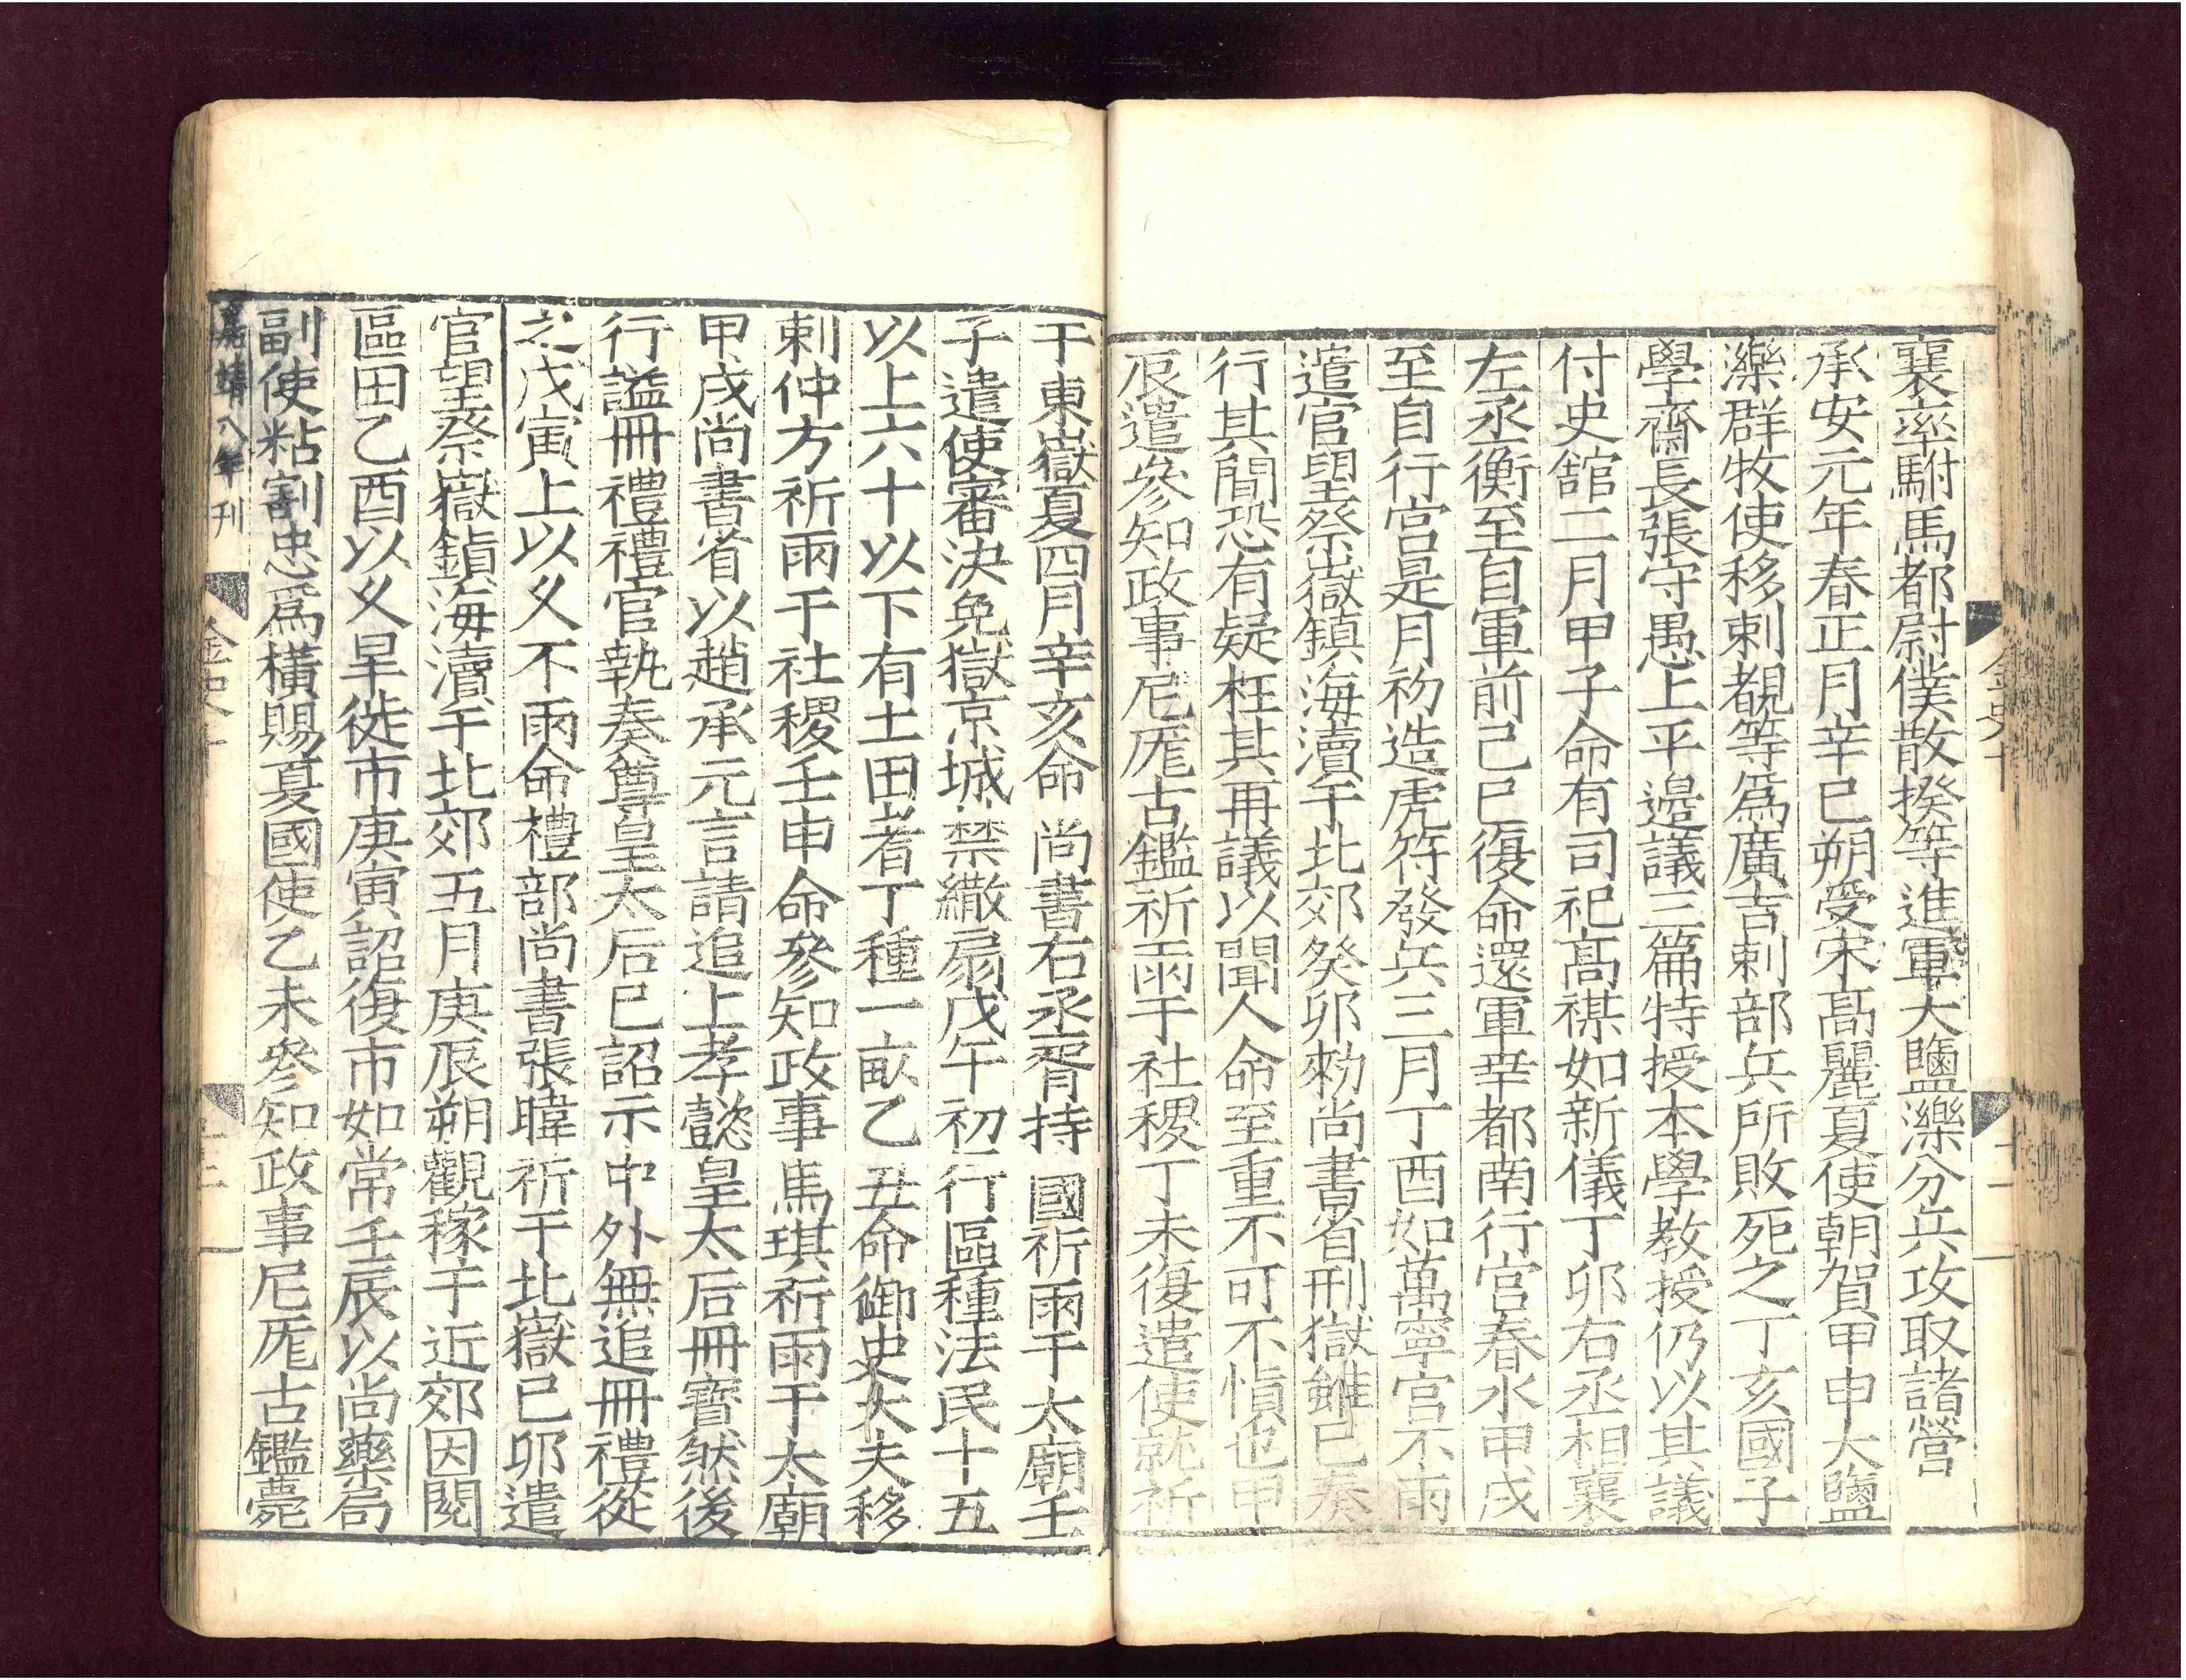 襄率駙馬都尉僕散揆等進軍大鹽濼分兵攻取諸營
承安元年春正月辛巳朔受宋髙麗夏使朝賀甲申大鹽
濼群牧使移剌覩等爲廣吉剌部兵所敗死之丁亥國子
學齋長張守愚上平邊議三篇特授本學教授仍以其議
付史舘二月甲子命有司祀髙禖如新儀丁卯右丞相襄
左丞衡至自軍前己巳復命還軍幸都南行宫春水甲戌
至自行宫是月初造虎符發兵三月丁酉如萬寧宫不雨
遣官望祭嶽鎮海瀆于北郊癸卯勑尚書省刑獄雖已奏
行其間恐有疑枉其再議以聞人命至重不可不慎也甲
辰遣參知政事尼厖古鑑祈雨于社稷丁未復遣使就祈
于東嶽夏四月辛亥命尚書右丞胥持國祈雨于太廟壬
子遣使審決免獄京城禁繖扇戊午初行區種法民十五
以上六十以下有土田者丁種一畝乙丑命御史大夫移
剌仲方祈雨于社稷壬申命參知政事馬琪祈雨于太廟
甲戌尚書省以趙承元言請追上孝懿皇太后冊寳然後
行謚冊禮禮官執奏尊皇太后已詔示中外無追冊禮從
之戊寅上以久不雨命禮部尚書張暐祈于北嶽己卯遣
官望祭嶽鎮海瀆于北郊五月庚辰朔觀稼于近郊因閱
區田乙酉以久旱徙市庚寅詔復市如常壬辰以尚藥局
副使粘割忠爲橫賜夏國使乙未參知政事尼厖古鑑薨
嘉靖八年刊
金史十